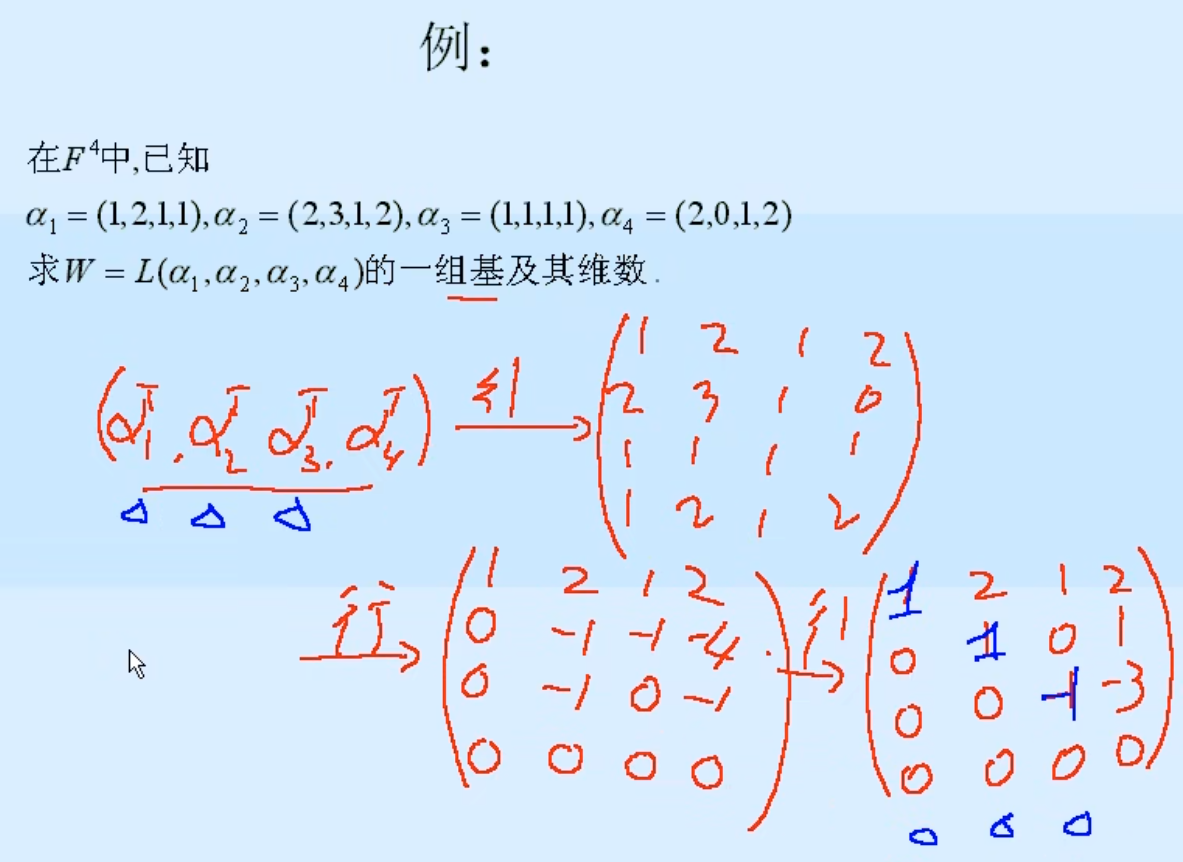 例：
在F⁴中,已知
α₁ = (1,2,1,1), α₂ = (2,3,1,2), α₃ = (1,1,1,1), α₄ = (2,0,1,2)
求W = L(α₁,α₂,α₃,α₄)的一组基及其维数.
(α₁ᵀ, α₂ᵀ α₃ᵀ, α₄ᵀ) → (1 2 1 2
2 3 1 0
1 1 1 1
1 2 1 2)
行→ (1 2 1 2
0 -1 -1 -4
0 -1 0 -1
0 0 0 0) → (1 2 1 2
0 1 0 1
0 0 -1 -3
0 0 0 0)